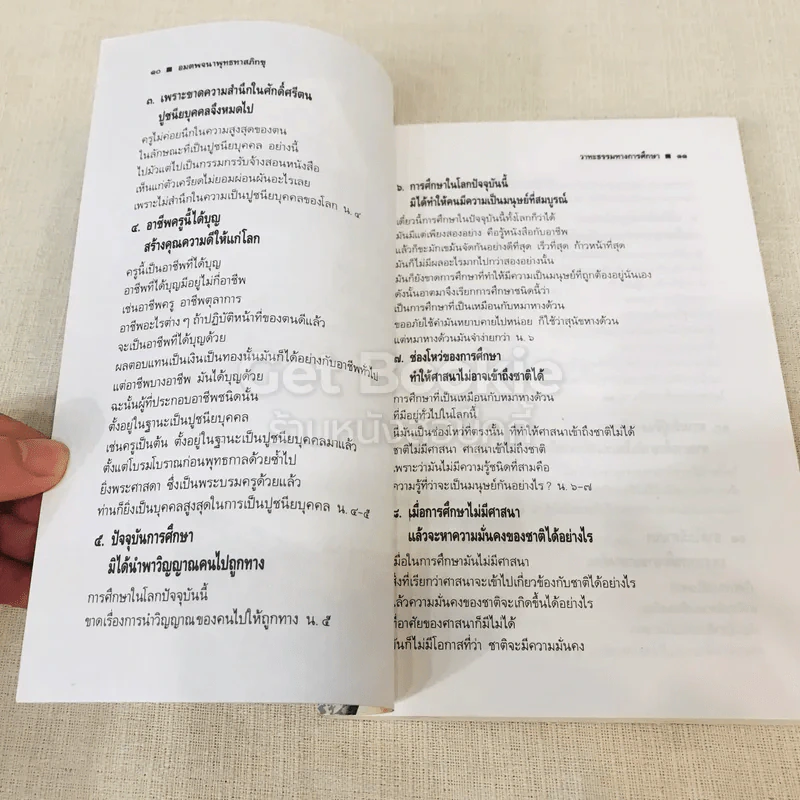 ๑๐ ■ อมตพจนาพุทธทาสภิกขุ
๓. เพราะขาดความสำนึกในศักดิ์ศรีตน
ปูชนียบุคคลจึงหมดไป
ครูไม่ค่อยนึกในความสูงสุดของตน
ในลักษณะที่เป็นปูชนียบุคคล อย่างนี้
ไปมัวแต่เป็นกรรมกรรับจ้างสอนหนังสือ
เห็นแก่ตัวเครียดไม่ยอมผ่อนผันอะไรเลย
เพราะไม่สำนึกในความเป็นปูชนียบุคคลของโลก น. ๔
๔. อาชีพครูนี้ได้บุญ
สร้างคุณความดีให้แก่โลก
ครูนี้เป็นอาชีพที่ได้บุญ
อาชีพที่ได้บุญมีอยู่ไม่กี่อาชีพ
เช่นอาชีพครู อาชีพตุลาการ
อาชีพอะไรต่าง ๆ ถ้าปฏิบัติหน้าที่ของตนดีแล้ว
จะเป็นอาชีพที่ได้บุญด้วย
ผลตอบแทนเป็นเงินเป็นทองนั้นมันก็ได้อย่างกับอาชีพทั่วไป
แต่อาชีพบางอาชีพ มันได้บุญด้วย
ฉะนั้นผู้ที่ประกอบอาชีพชนิดนั้น
ตั้งอยู่ในฐานะเป็นปูชนียบุคคล
เช่นครูเป็นต้น ตั้งอยู่ในฐานะเป็นปูชนียบุคคลมาแล้ว
ตั้งแต่โบรมโบราณก่อนพุทธกาลด้วยซ้ำไป
ยิ่งพระศาสดา ซึ่งเป็นพระบรมครูด้วยแล้ว
ท่านก็ยิ่งเป็นบุคคลสูงสุดในการเป็นปูชนียบุคคล น. ๔-๕
๕. ปัจจุบันการศึกษา
มิได้นำพาวิญญาณคนไปถูกทาง
การศึกษาในโลกปัจจุบันนี้
ขาดเรื่องการนำวิญญาณของคนไปให้ถูกทาง น. ๕
วาทะธรรมทางการศึกษา ■ ๑๑
๖. การศึกษาในโลกปัจจุบันนี้
มิได้ทำให้คนมีความเป็นมนุษย์ที่สมบูรณ์
เดี๋ยวนี้การศึกษาในปัจจุบันนี้ทั้งโลกก็ว่าได้
มันมีแต่เพียงสองอย่าง คือรู้หนังสือกับอาชีพ
แล้วก็ขะมักเขม้นจัดกันอย่างดีที่สุด เร็วที่สุด ก้าวหน้าที่สุด
มันก็ไม่มีผลอะไรมากไปกว่าสองอย่างนั้น
มันก็ยังขาดการศึกษาที่ทำให้มีความเป็นมนุษย์ที่ถูกต้องอยู่นั่นเอง
ดังนั้นอาตมาจึงเรียกการศึกษาชนิดนี้ว่า
เป็นการศึกษาที่เป็นเหมือนกับหมาหางด้วน
ขออภัยใช้คำมันหยาบคายไปหน่อย ก็ใช้ว่าสุนัขหางด้วน
แต่หมาหางด้วนมันจำง่ายกว่า น. ๖
๗. ช่องโหว่ของการศึกษา
ทำให้ศาสนาไม่อาจเข้าถึงชาติได้
การศึกษาที่เป็นเหมือนกับหมาหางด้วน
ที่มีอยู่ทั่วไปในโลกนี้
มันเป็นช่องโหว่ที่ตรงนั้น ที่ทำให้ศาสนาเข้าถึงชาติไม่ได้
ชาติไม่มีศาสนา ศาสนาเข้าไม่ถึงชาติ
เพราะว่ามันไม่มีความรู้ชนิดที่สามคือ
ความรู้ที่ว่าจะเป็นมนุษย์กันอย่างไร? น. ๖-๗
๘. เมื่อการศึกษาไม่มีศาสนา
แล้วจะหาความมั่นคงของชาติได้อย่างไร
เมื่อในการศึกษามันไม่มีศาสนา
สิ่งที่เรียกว่าศาสนาจะเข้าไปเกี่ยวข้องกับชาติได้อย่างไร
แล้วความมั่นคงของชาติจะเกิดขึ้นได้อย่างไร
ที่อาศัยของศาสนาก็มีไม่ได้
มันก็ไม่มีโอกาสที่ว่า ชาติจะมีความมั่นคง